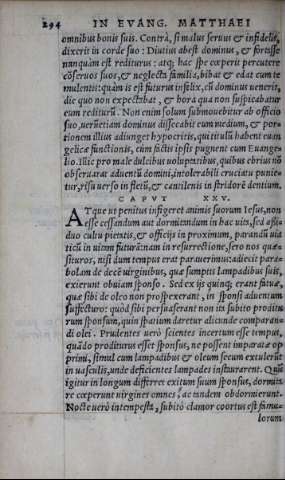 294 IN EVANG. MATTHAEI
omnibus bonis suis. Contrà, si malus seruus & infidelis,
dixerit in corde suo: Diutius abest dominus, & fortasse
nunquàm est rediturus: atq; hac spe cœperit percutere
cōseruos suos, & neglecta familia, bibat & edat cum te
mulentis: quàm is est futurus infelix, cũ dominus uenerit,
die quo non expectabat, & hora qua non suspicabatur
eum rediturũ. Non enim solum submouebitur ab officio
suo, uerùm etiam dominus dissecabit eum medium, & por-
tionem illius adiunget hypocritis, qui titulũ habent euan
gelicæ functionis, cùm factis ipsis pugnent cum Euange-
lio. Illic pro male dulcibus uoluptatibus, quibus ebrius nõ
obseruarat aduentũ domini, intolerabili cruciatu punie-
tur, risu uerso in fletũ, & cantilenis in stridorē dentium.
CAPVT XXV.
ATque ut penitus infigeret animis suorum Iesus, non
esse cessandum aut dormitandum in hac uita, sed aßi-
duo cultu pietatis, & officijs in proximum, parandũ uia
ticũ in uitam futurã: nam in resurrectione, sero nos quæ-
situros, nisi dum tempus erat parauerimus: adiecit para-
bolam de decē uirginibus, quæ sumptis lampadibus suis,
exierunt obuiam sponso. Sed ex ijs quinq; erant fatuæ,
quæ sibi de oleo non prospexerant, in sponsi aduentum
suffecturo: quòd sibi persuaserant non ita subitò proditu
rum sponsum, quin spatium daretur alicunde comparan-
di olei. Prudentes uerò scientes incertum esse tempus,
quãdo proditurus esset sponsus, ne possent imparatæ op
primi, simul cum lampadibus & oleum secum extulerũt
in uasculis, unde deficientes lampades instaurarent. Quũ
igitur in longum differret exitum suum sponsus, dormita
re cœperunt uirgines omnes, ac tandem obdormierunt.
Nocte uerò intempesta, subitò clamor coortus est famu-
lorum